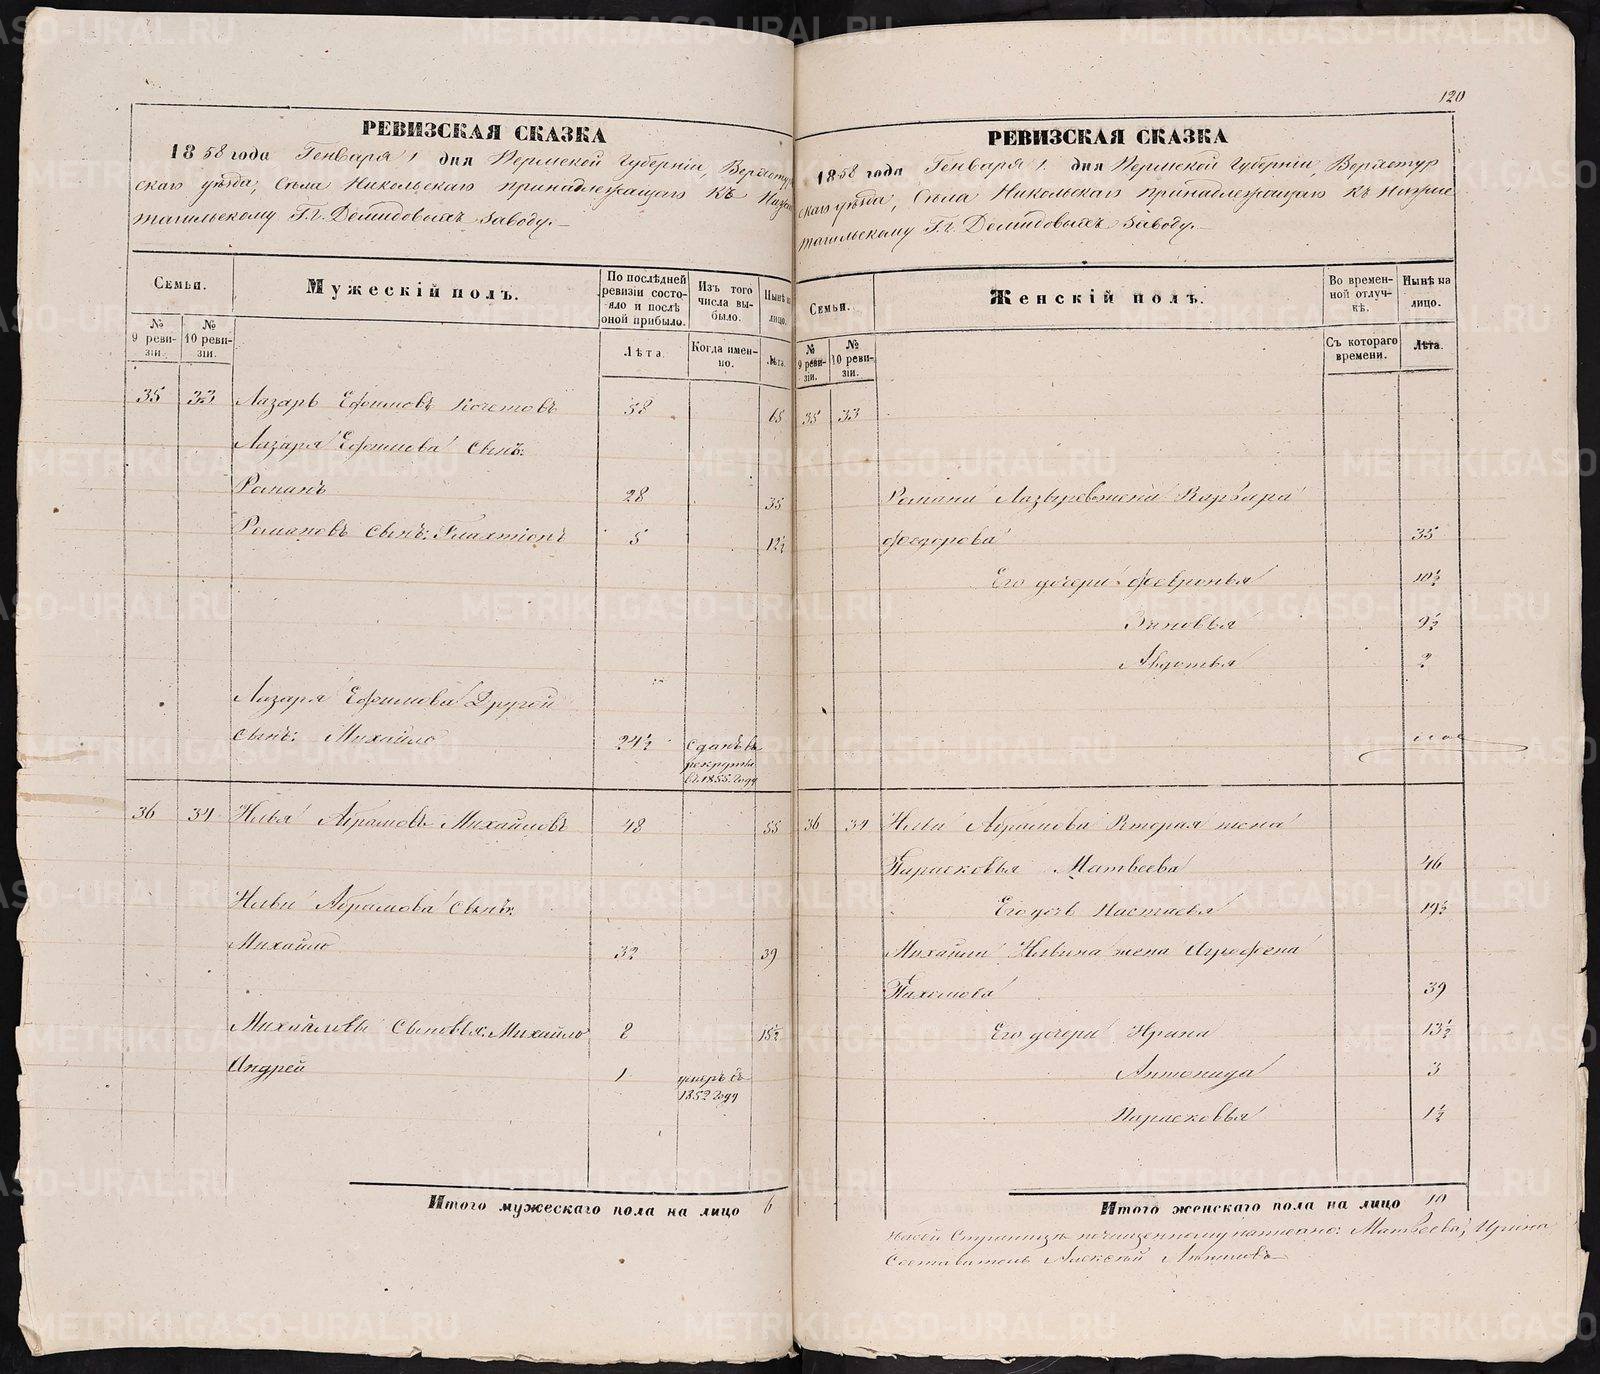 120
РЕВИЗСКАЯ СКАЗКА
1858 года Генваря 1 дня Пермской Губерніи, Верхотур
скаго уѣзда, Села Никольскаго принадлежащаго къ Нижне
тагильскому Г.г. Демидовыхъ Заводу.
Семьи.
Мужескій полъ.
По послѣдней ревизіи состояло и послѣ оной прибыло.
Изъ того числа выбыло.
Нынѣ на лицо.
№ 9 ревизіи.
№ 10 ревизіи.
Лѣта.
Когда именно.
Лѣта.
35 33 Лазарь Ефимовъ Кочетовъ 58 65
Лазаря Ефимова сынъ:
Романъ 28 35
Романовъ сынъ: Галахтіонъ 5 12½
Лазаря Ефимова Другой
сынъ: Михайло 24½ сданъ въ
рекруты
въ 1855 году
36 34 Илья Абрамовъ Михайловъ 48 55
Ильи Абрамова сынъ:
Михайло 32 39
Михайловы Сыновья: Михайло 8 15½
Андрей 1 умеръ въ
1852 году
Итого мужескаго пола на лицо 6
РЕВИЗСКАЯ СКАЗКА
1858 года Генваря 1 дня Пермской Губерніи, Верхотур
скаго уѣзда, Села Никольскаго принадлежащаго къ Нижне
тагильскому Г.г. Демидовыхъ Заводу.
Семьи.
Женскій полъ.
Во временной отлучкѣ.
Нынѣ на лицо.
№ 9 ревизіи.
№ 10 ревизіи.
Съ котораго времени.
Лѣта.
35 33
Романа Лазырева жена Варвара
Федорова 35
Его дочери Февронья 10½
Зиновья 9½
Авдотья 2
36 34 Ильи Абрамова Вторая жена
Парасковья Матвеева 46
Его дочь Настасья 19½
Михайла Ильина жена Аграфена
Пахомова 39
Его дочери Ирина 13½
Антонида 3
Парасковья 1½
Итого женскаго пола на лицо 10
На сей Странице по чищенному написано: Матвеева, Ирина
Составитель Алексей
METRIKI.GASO-URAL.RU